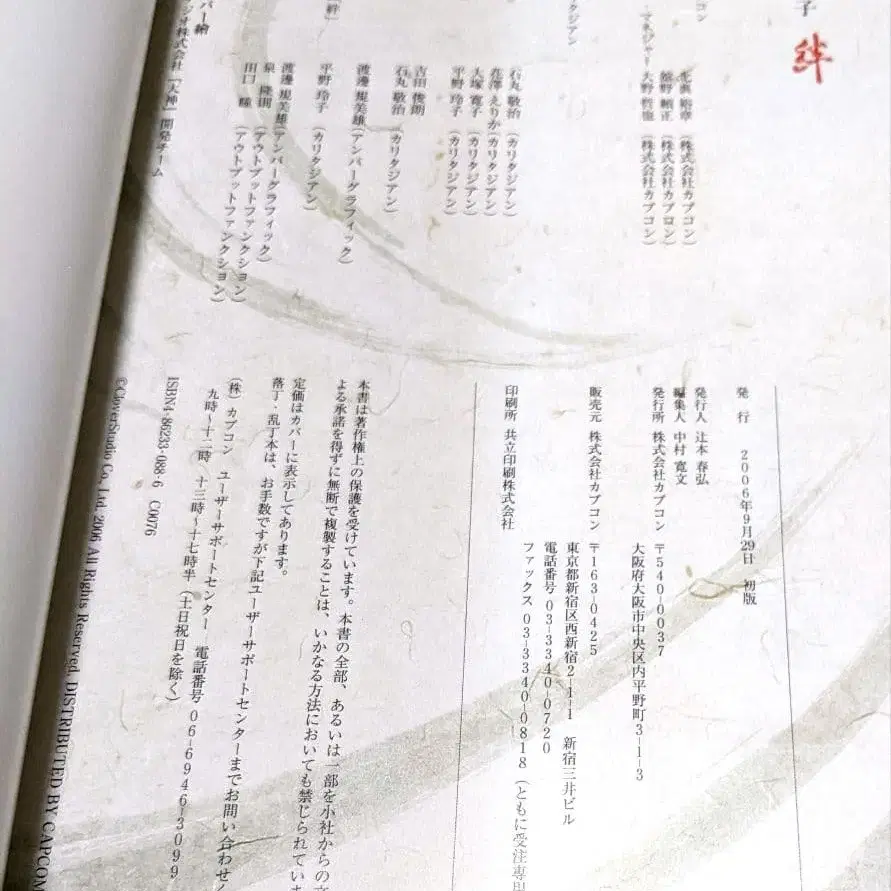 子 絆
カプコン
北奥 裕幸 （株式会社カプコン）
雄野 順正 （株式会社カプコン）
マネジャー 大野 哲也 （株式会社カプコン）
カリタジアン
石丸 敬治 （カリタジアン）
花澤 えりか （カリタジアン）
大塚 寛子 （カリタジアン）
平野 玲子 （カリタジアン）
吉田 俊朗
石丸 敬治 （カリタジアン）
渡邊 規美雄 （アンバーグラフィック）
［絆］
平野 玲子 （カリタジアン）
渡邊 規美雄 （アンバーグラフィック）
泉 隆則 （アウトプットファンクション）
田口 瞳 （アウトプットファンクション）
株式会社「大神」開発チーム
発 行 2006年9月29日 初版
発行人 辻本 春弘
編集人 中村 寛文
発行所 株式会社カプコン 〒540-0037
大阪府大阪市中央区内平野町3-1-3
販売元 株式会社カプコン 〒163-0425
東京都新宿区西新宿2-1-1 新宿三井ビル
電話番号 03-3340-0720
ファックス 03-3340-0818（ともに受注専用
印刷所 共立印刷株式会社
本書は著作権上の保護を受けています。本書の全部、あるいは一部を小社からの文
よる承諾を得ずに無断で複製することは、いかなる方法においても禁じられていま
定価はカバーに表示してあります。
落丁・乱丁本は、お手数ですが下記ユーザーサポートセンターまでお問い合わせく
（株）カプコン ユーザーサポートセンター 電話番号 06-6946-3099
九時～十二時 十三時～十七時半（土日祝日を除く）
ISBN4-86233-088-6 C0076
©CloverStudio Co., Ltd. 2006 All Rights Reserved. DISTRIBUTED BY CAPCOM